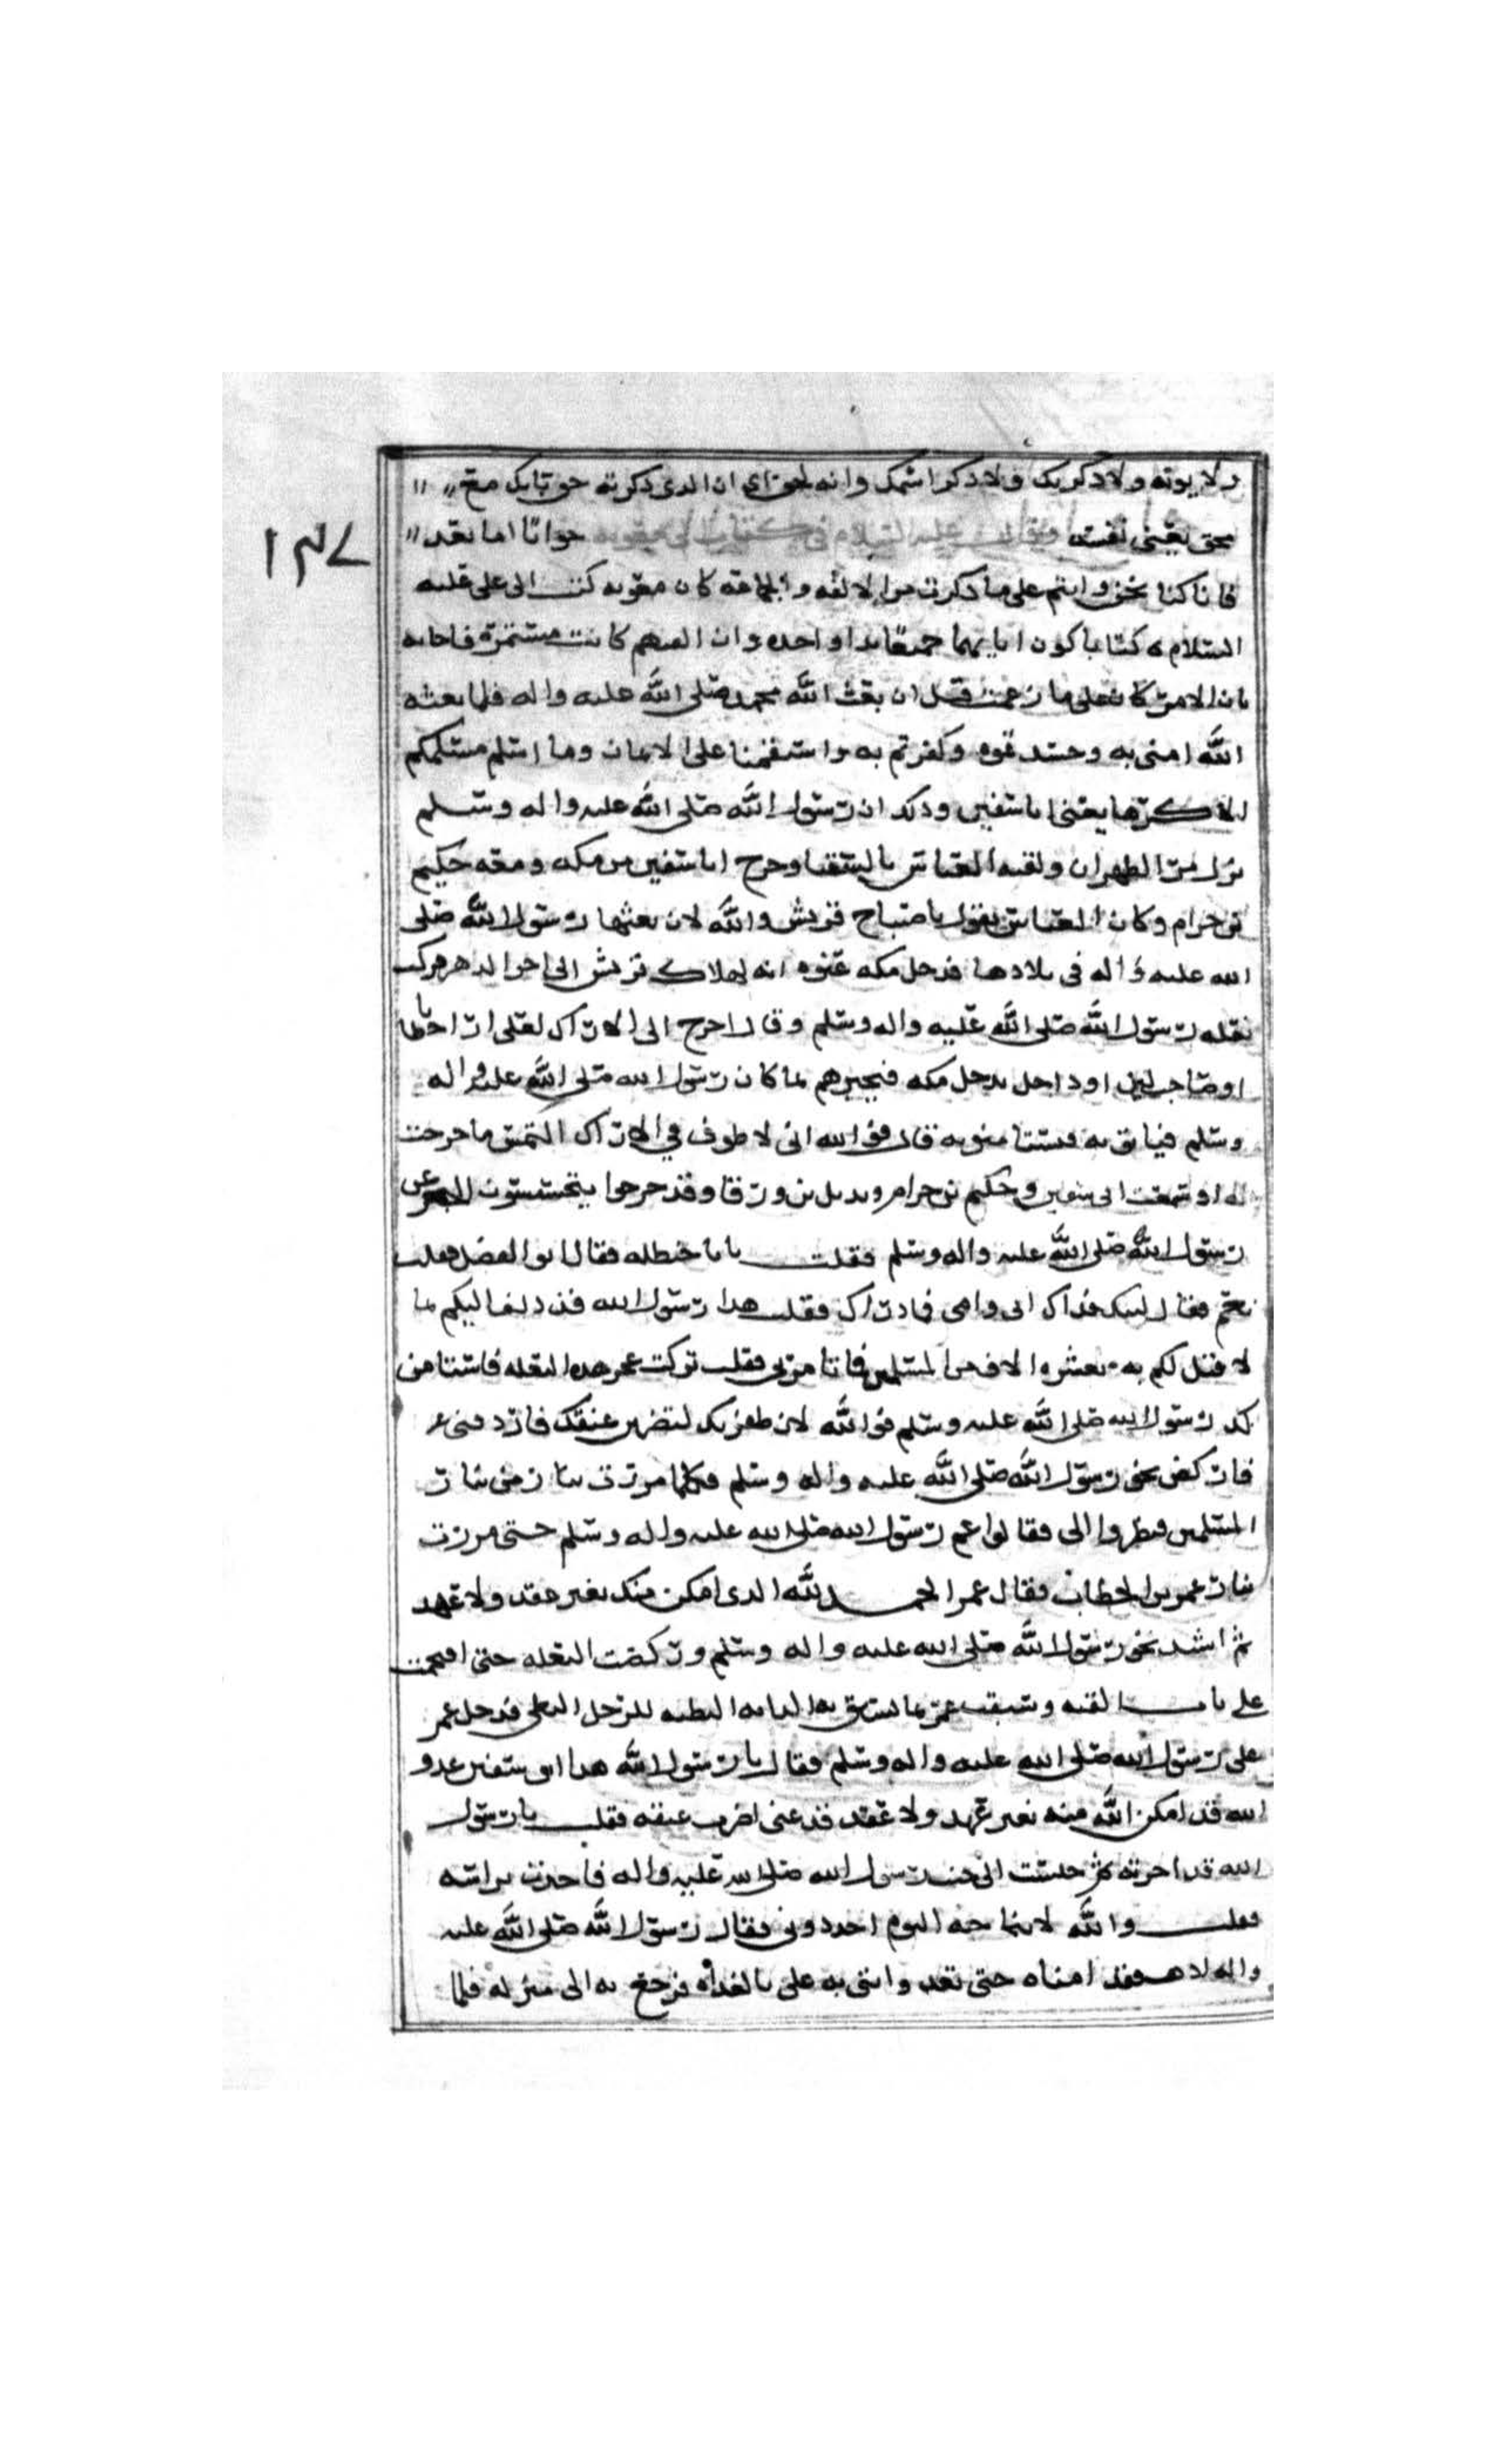 ولا يوته ولا ذكر بك ولا ذكر اسمك وانه لحق اي ان الذي ذكرته حق تابك مع
محق يعني نفسه ومن كلامه عليه السلام في كتاب الى معويه جوابًا اما بعد
١٣٧
فانا كنا نحن وانتم على ما ذكرت من الالفه والجماعه كان معويه كتب الى علي عليه
السلام كتابا كون ايديهما جميعًا يدا واحده وان الفتهم كانت مستمرة فاجابه
بان الامر كان على ما زعمت قبل ان بعث الله محمد صلى الله عليه واله فلما بعثه
الله امنى به وحسد قوم وكفرتم به واستقمنا على الايمان وما اسلم مسلمكم
الا كرها يعني ابا سفين وذكر ان رسول الله صلى الله عليه واله وسلم
نزل مر الظهران ولقيه العباس بالسقيا وخرج ابا سفين من مكه ومعه حكيم
بن حزام وكان العباس يقول يا صباح قريش والله لان بعثها رسول الله صلى
الله عليه واله في بلادها فدخل مكه عنوه انه لهلاك قريش الى اخر الدهر فركب
بغله رسول الله صلى الله عليه واله وسلم وقال اخرج الى الاراك لعلي ارا حطابا
او صاحب لبن او داخل يدخل مكه فيخبرهم بما كان رسول الله صلى الله عليه واله
وسلم فياتونه فيستامنونه قال فوالله اني لاطوف في الاراك التمس ما خرجت
له اذ سمعت ابى سفين وحكيم بن حزام وبديل بن ورقا وقد خرجوا يتجسسون الخبر عن
رسول الله صلى الله عليه واله وسلم فقلت يا با حنظله فقال ابو الفضل فقلت
نعم فقال لبيك فداك ابى وامى فما وراك فقلت هذا رسول الله قد دلف اليكم بما
لا قبل لكم به بعشره الاف من المسلمين فما تامرني فقلت تركب عجز هذه البغله فاستامن
لك رسول الله صلى الله عليه وسلم فوالله لان ظفر بك ليضربن عنقك فاردفني
فاركض نحو رسول الله صلى الله عليه واله وسلم فكلما مررت بنار من نار
المسلمين فنظروا الى فقالوا عم رسول الله صلى الله عليه واله وسلم حتى مررت
بنار عمر بن الخطاب فقال عمر الحمد لله الذي امكن منك بغير عقد ولا عهد
ثم اشتد نحو رسول الله صلى الله عليه واله وسلم وركضت البغله حتى اقتحمت
على باب القبه وسبقت عمر بما يسبق به الدابه البطيه للرجل البطى فدخل عمر
على رسول الله صلى الله عليه واله وسلم فقال يا رسول الله هذا ابو سفين عدو
الله قد امكن الله منه بغير عهد ولا عقد فدعني اضرب عنقه فقلت يا رسول
الله قد اجرته ثم جلست الى جنب رسول الله صلى الله عليه واله فاخذت براسه
فقلت والله لا يناجيه اليوم احد دوني فقال رسول الله صلى الله عليه
واله اذهب فقد امناه حتى تغد وانتى به على بالغداه فرجع به الى منزله فلما